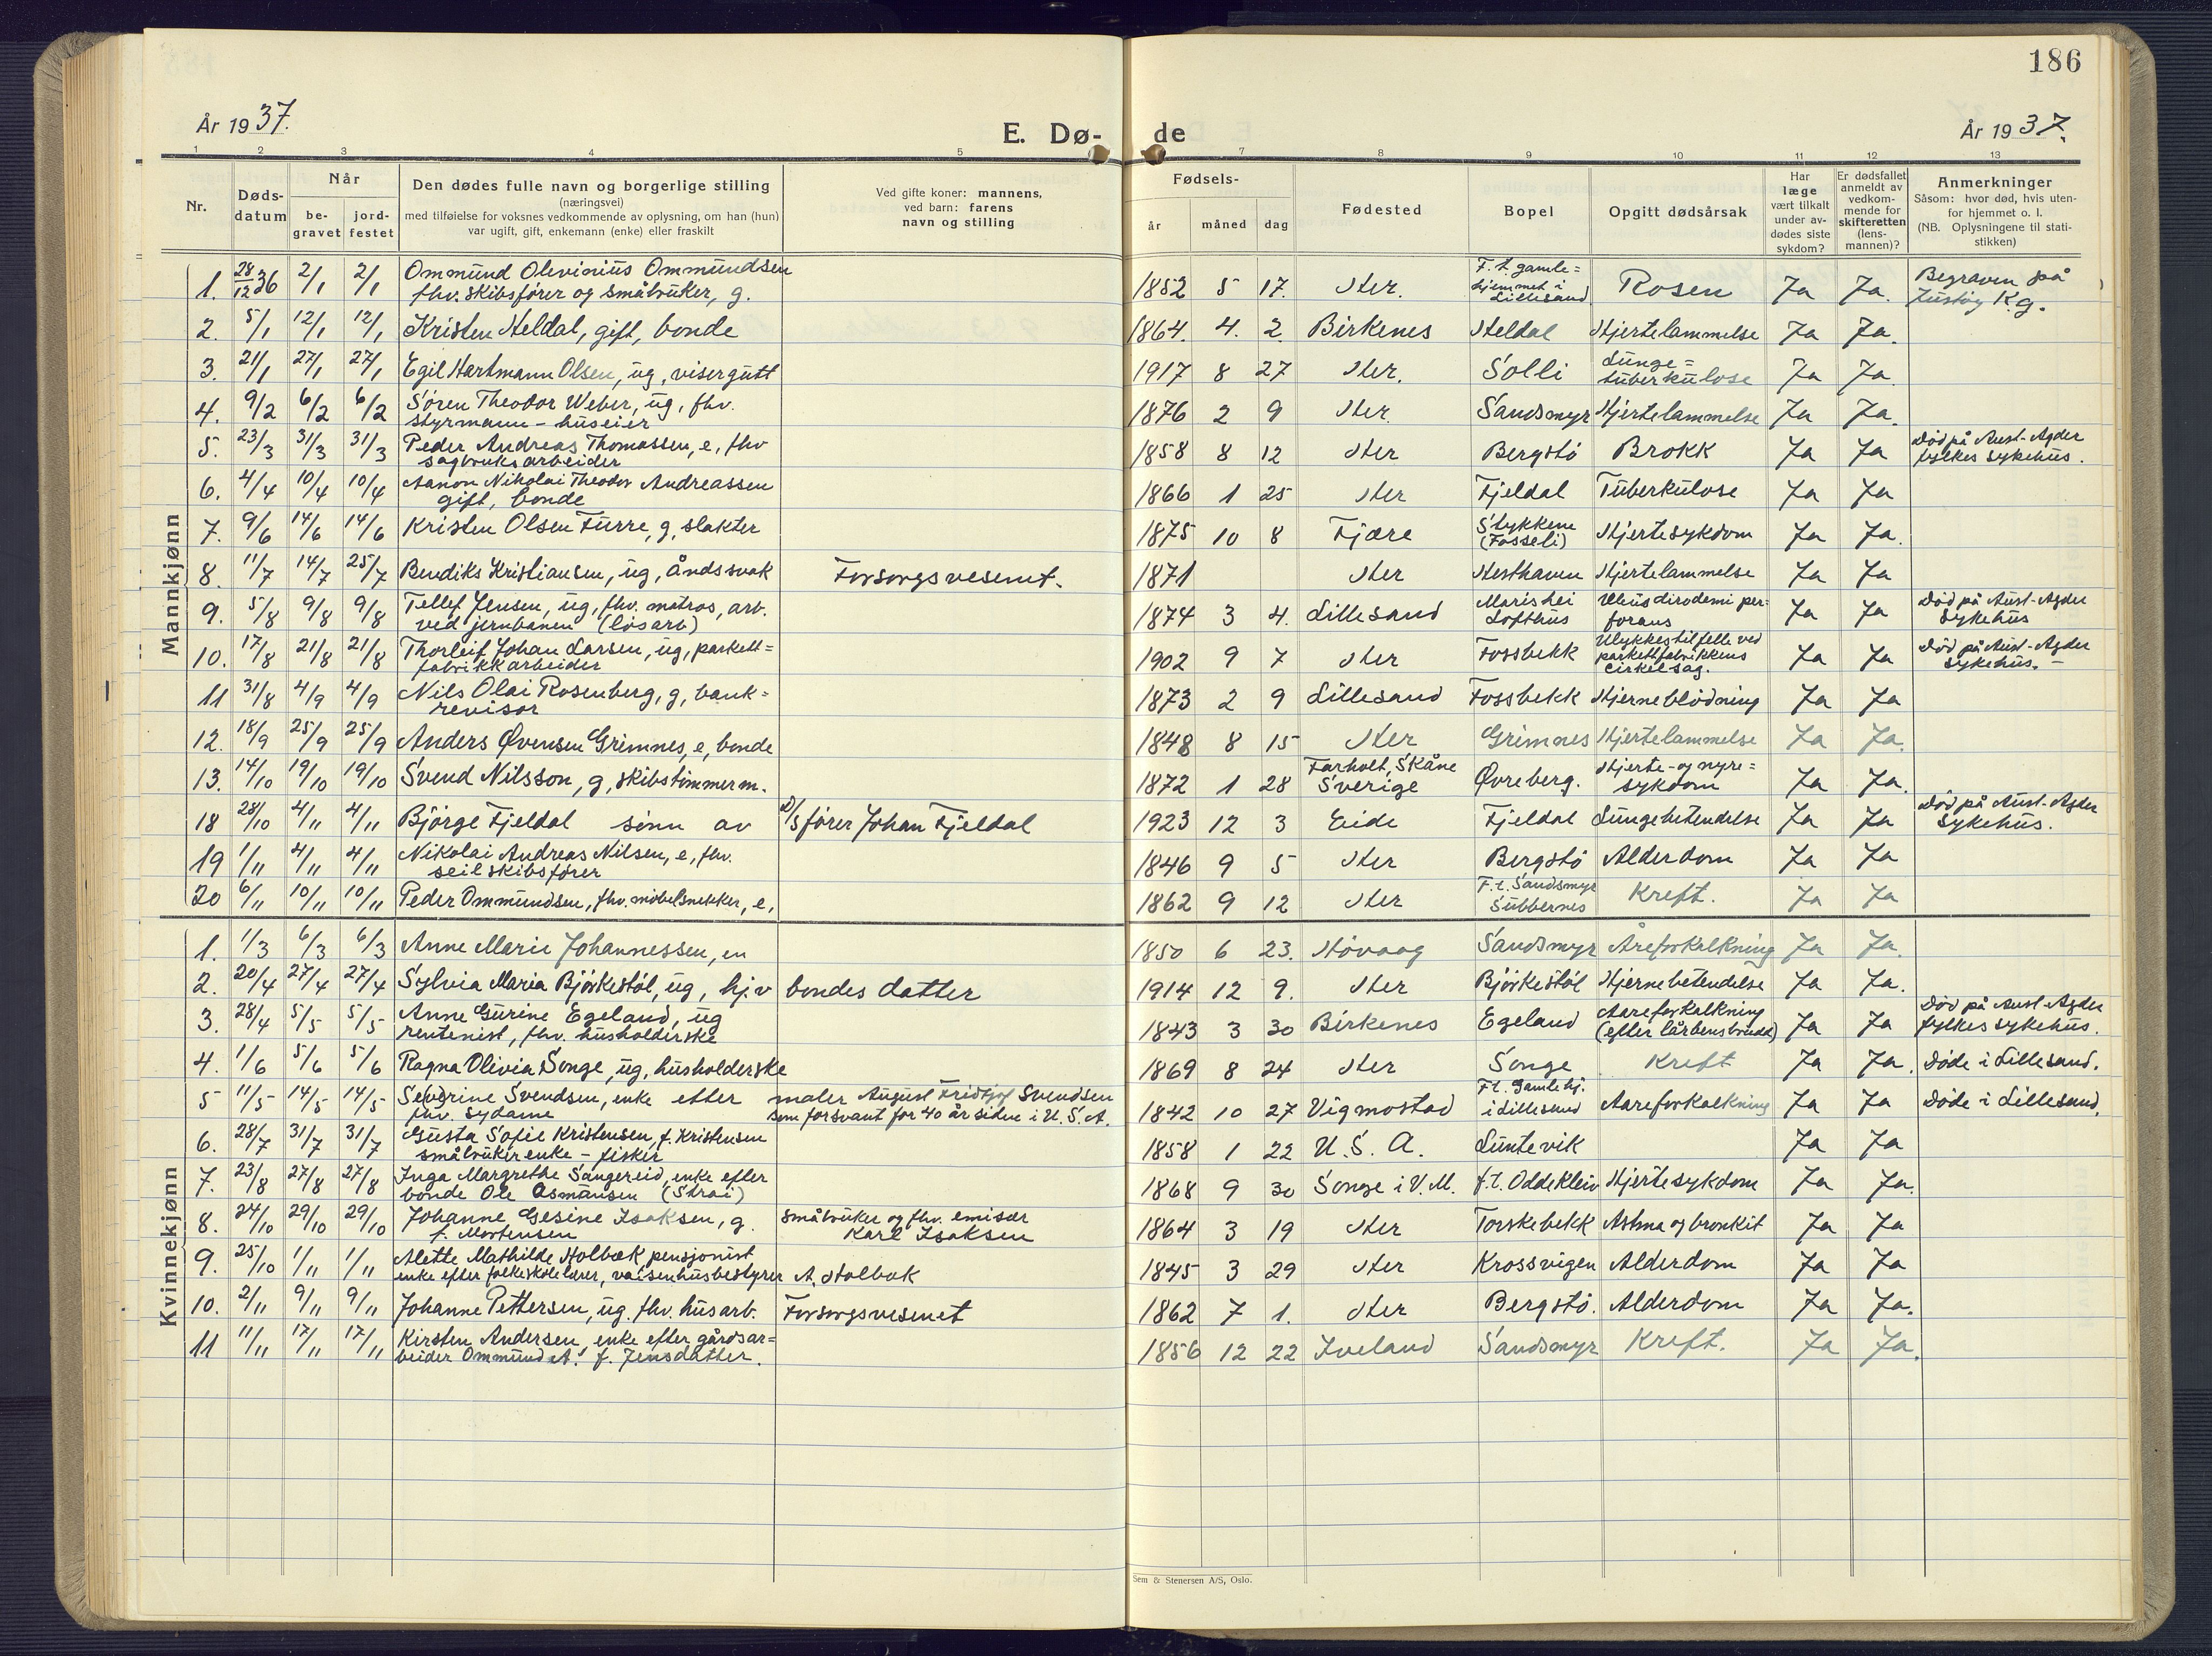 186
År 1937.
E. Dø-
de
År 1937.
1 2 3 4 5 7 8 9 10 11 12 13
Nr.
Døds-
datum
Når
be-
gravet
jord-
festet
Den dødes fulle navn og borgerlige stilling
(næringsvei)
med tilføielse for voksnes vedkommende av oplysning, om han (hun)
var ugift, gift, enkemann (enke) eller fraskilt
Ved gifte koner: mannens,
ved barn: farens
navn og stilling
Fødsels-
år måned dag
Fødested
Bopel
Opgitt dødsårsak
Har
læge
vært tilkalt
under av-
dødes siste
sykdom?
Er dødsfallet
anmeldt av
vedkom-
mende for
skifteretten
(lens-
mannen)?
Anmerkninger
Såsom: hvor død, hvis uten-
for hjemmet o. l.
(NB. Oplysningene til stati-
stikken)
Mannkjønn
1. 28/12 36 2/1 2/1 Ommund Olevinius Ommundsen
fhv. skibsfører og småbruker, g.
1852 5 17. Her. F. t. gamle=
hjemmet i
Lillesand
Rosen Ja Ja. Begraven på
Justøy K.g.
2. 5/1 12/1 12/1 Kristen Heldal, gift, bonde
1864. 4. 2. Birkenes Heldal Hjertelammelse Ja Ja.
3. 21/1 27/1 27/1 Egil Hartmann Olsen, ug, visergutt
1917 8 27 Her. Solli Lunge=
tuberkulose Ja Ja.
4. 9/2 6/2 6/2 Søren Theodor Weber, ug, fhv.
styrmann - huseier
1876 2 9 Her. Sandsmyr Hjertelammelse Ja Ja.
5. 23/3 31/3 31/3 Peder Andreas Thomassen, e, fhv
sagbruksarbeider
1858 8 12 Her Bergstø Brokk Ja Ja Død på Aust-Agder
fylkes sykehus.
6. 4/4 10/4 10/4 Aanon Nikolai Theodor Andreassen
gift, bonde
1866 1 25 Her Fjeldal Tuberkulose Ja Ja
7. 9/6 14/6 14/6 Kristen Olsen Furre, g, slakter
1875 10 8 Fjære Stykkene
(Fosseli) Hjertesykdom Ja Ja.
8. 11/7 14/7 25/7 Bendiks Kristiansen, ug, åndssvak Forsorgsvesent.
1871 Her Hesthaven Hjertelammelse Ja Ja
9. 5/8 9/8 9/8 Tellef Jensen, ug, fhv. matros, arb.
ved jernbanen (løsarb)
1874 3 4. Lillesand Marishei
Lofthus per-
forans Ja Ja Død på Aust-Agder
Sykehus
10. 17/8 21/8 21/8 Thorleif Johan Larsen, ug, parkett=
fabrikkarbeider
1902 9 7 Her Fossbekk Ulykkestilfelle ved
parkettfabrikkens
cirkelsag. Ja Ja Død på Aust-Agder
sykehus. -
11 31/8 4/9 4/9 Nils Olai Rosenberg, g, bank=
revisor
1873 2 9 Lillesand Fossbekk Hjerneblødning Ja Ja
12. 18/9 25/9 25/9 Anders Øvensen Grimnes, e, bonde
1848 8 15 Her Grimnes Hjertelammelse Ja Ja.
13. 14/10 19/10 19/10 Svend Nilsson, g, skibstømmerm.
1872 1 28 Farholt, Skåne
Sverige Øvreberg. Hjerte- og nyre=
sykdom Ja Ja.
18 28/10 4/11 4/11 Bjørge Fjeldal sønn av D/S fører Johan Fjeldal
1923 12 3 Eide Fjeldal Lungebetendelse Ja Ja Død på Aust-Agder
Sykehus.
19 1/11 4/11 4/11 Nikolai Andreas Nilsen, e, fhv.
seilskibsfører
1846 9 5 Her Bergstø Alderdom Ja Ja
20 6/11 10/11 10/11 Peder Ommundsen, fhv. møbelsnekker, e,
1862 9 12 Her F. t. Sandsmyr
Subbernes Kreft. Ja Ja
Kvinnekjønn
1. 1/3 6/3 6/3 Anne Marie Johannessen, en
1850 6 23. Høvaag Sandsmyr Åreforkalkning Ja Ja.
2. 20/4 27/4 27/4 Sylvia Maria Bjørkestøl, ug, hj.v bondes datter
1914 12 9. Her Bjørkestøl Hjernebetendelse Ja Ja.
3. 28/4 5/5 5/5 Anne Gurine Egeland, ug
rentenist, fhv. husholderske
1843 3 30 Birkenes Egeland Aareforkalkning
(efter lårbensbrudd) Ja Ja Død på Aust-Agder
fylkessykehus.
4. 1/6 5/6 5/6 Ragna Olivia Songe, ug, husholderske
1869 8 24 Her Songe Kreft Ja Ja. Døde i Lillesand.
5 11/5 14/5 14/5 Severine Svendsen, enke etter maler August Fridtjof Svendsen
fhv. sydame som forsvant for 40 år siden i U. S. A.
1842 10 27 Vigmostad F. t. Gamlehj.
i Lillesand Aareforkalkning Ja Ja Døde i Lillesand.
6. 28/7 31/7 31/7 Gusta Sofie Kristensen, f. Kristensen
småbrukerenke - fisker
1858 1 22 U. S. A. Luntevik Ja Ja
7. 23/8 27/8 27/8 Inga Margrethe Sangereid, enke efter
bonde Ole Osmunsen (Strai)
1868 9 30 Songe i V. M. f. t. Oddekleiv Hjertesykdom Ja Ja.
8. 24/10 29/10 29/10 Johanne Gesine Isaksen, g. småbruker og fhv. emisær
f. Mortensen Karl Isaksen
1864 3 19 Her Torskebekk Astma og bronkit Ja Ja
9. 25/10 1/11 1/11 Alette Mathilde Holbæk, pensjonist
enke efter folkeskolelærer, vaisenhusbestyrer A. Holbæk
1845 3 29 Her Krossvigen Alderdom Ja Ja
10. 2/11 9/11 9/11 Johanne Pettersen, ug. fhv. husarb. Forsorgsvesenet
1862 7 1. Her Bergstø. Alderdom Ja Ja.
11 11/11 17/11 17/11 Kirsten Andersen, enke efter gårdsar=
beider Ommund A. f. Jensdatter.
1856 12 22 Iveland Sandsmyr Kreft. Ja Ja.
Sem & Stenersen A/S, Oslo.